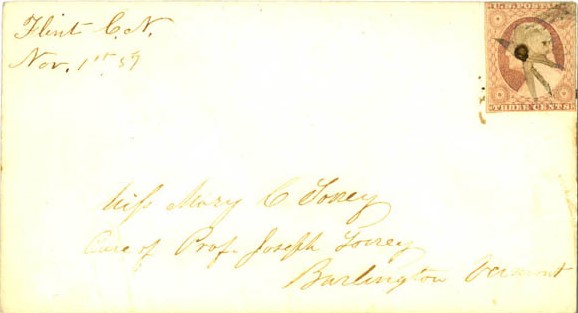 Flint C.N.
Nov. 1st 57
U.S. POSTAGE
THREE CENTS
Miss Mary C Torrey
Care of Prof. Joseph Torrey
Burlington Vermont